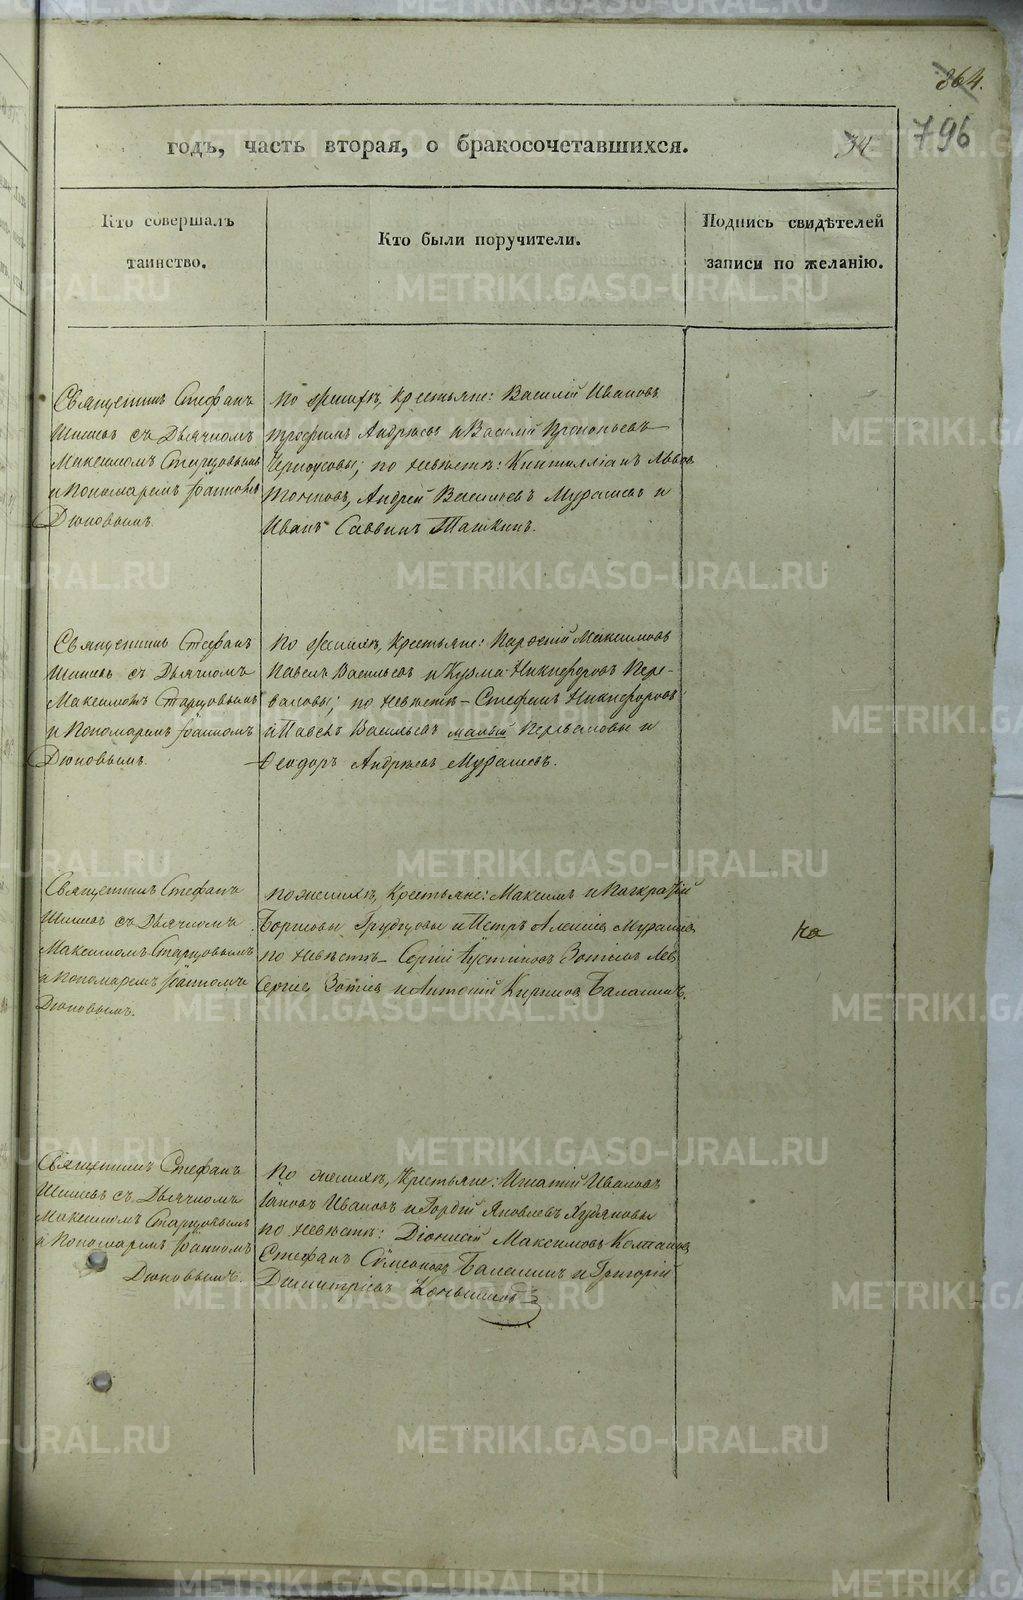 364.
796
34
годъ, часть вторая, о бракосочетавшихся.
Кто совершалъ
таинство.
Кто были поручители.
Подпись свидѣтелей
записи по желанію.
Священникъ Стефанъ
съ Дьячкомъ
Максимомъ Старцовымъ
и Пономаремъ Іоанномъ
Дюповымъ.
По женихѣ, Крестьяне: Василій Ивановъ
Трофимъ Андреевъ и Василій Прокопьевъ
по невѣстѣ: Львов
Андрей Васильевъ Мурашев и
Иванъ Саввинъ Ташкинъ.
Священникъ Стефанъ
съ Дьячкомъ
Максимомъ Старцовымъ
и Пономаремъ Іоанномъ
Дюповымъ.
По женихѣ, Крестьяне: Максимовъ
Павелъ Васильевъ и Кузма Никифоровъ Пере-
валовы; по невѣстѣ – Стефанъ Никифоровъ
и Павелъ Васильевъ малый Переваловы и
Ѳеодоръ Андреевъ Мурашевъ.
Священникъ Стефанъ
съ Дьячкомъ
Максимомъ Старцовымъ
и Пономаремъ Іоанномъ
Дюповымъ.
По женихѣ, Крестьяне: Максимъ и Панкратій
Борисовы и Петръ Алексѣев Мурашев,
по невѣстѣ – Сергій
Зотіев и Антоній Кирилов Балакинъ.
Священникъ Стефанъ
съ Дьячкомъ
Максимомъ Старцовымъ
и Пономаремъ Іоанномъ
Дюповымъ.
По женихѣ, Крестьяне: Игнатій Ивановъ
Ивановъ и Гордій Яковлевъ Худяковы
по невѣстѣ: Діонисій Максимовъ
Стефанъ Сѵмеоновъ Балакинъ и Григорій
Димитріевъ
METRIKI.GASO-URAL.RU